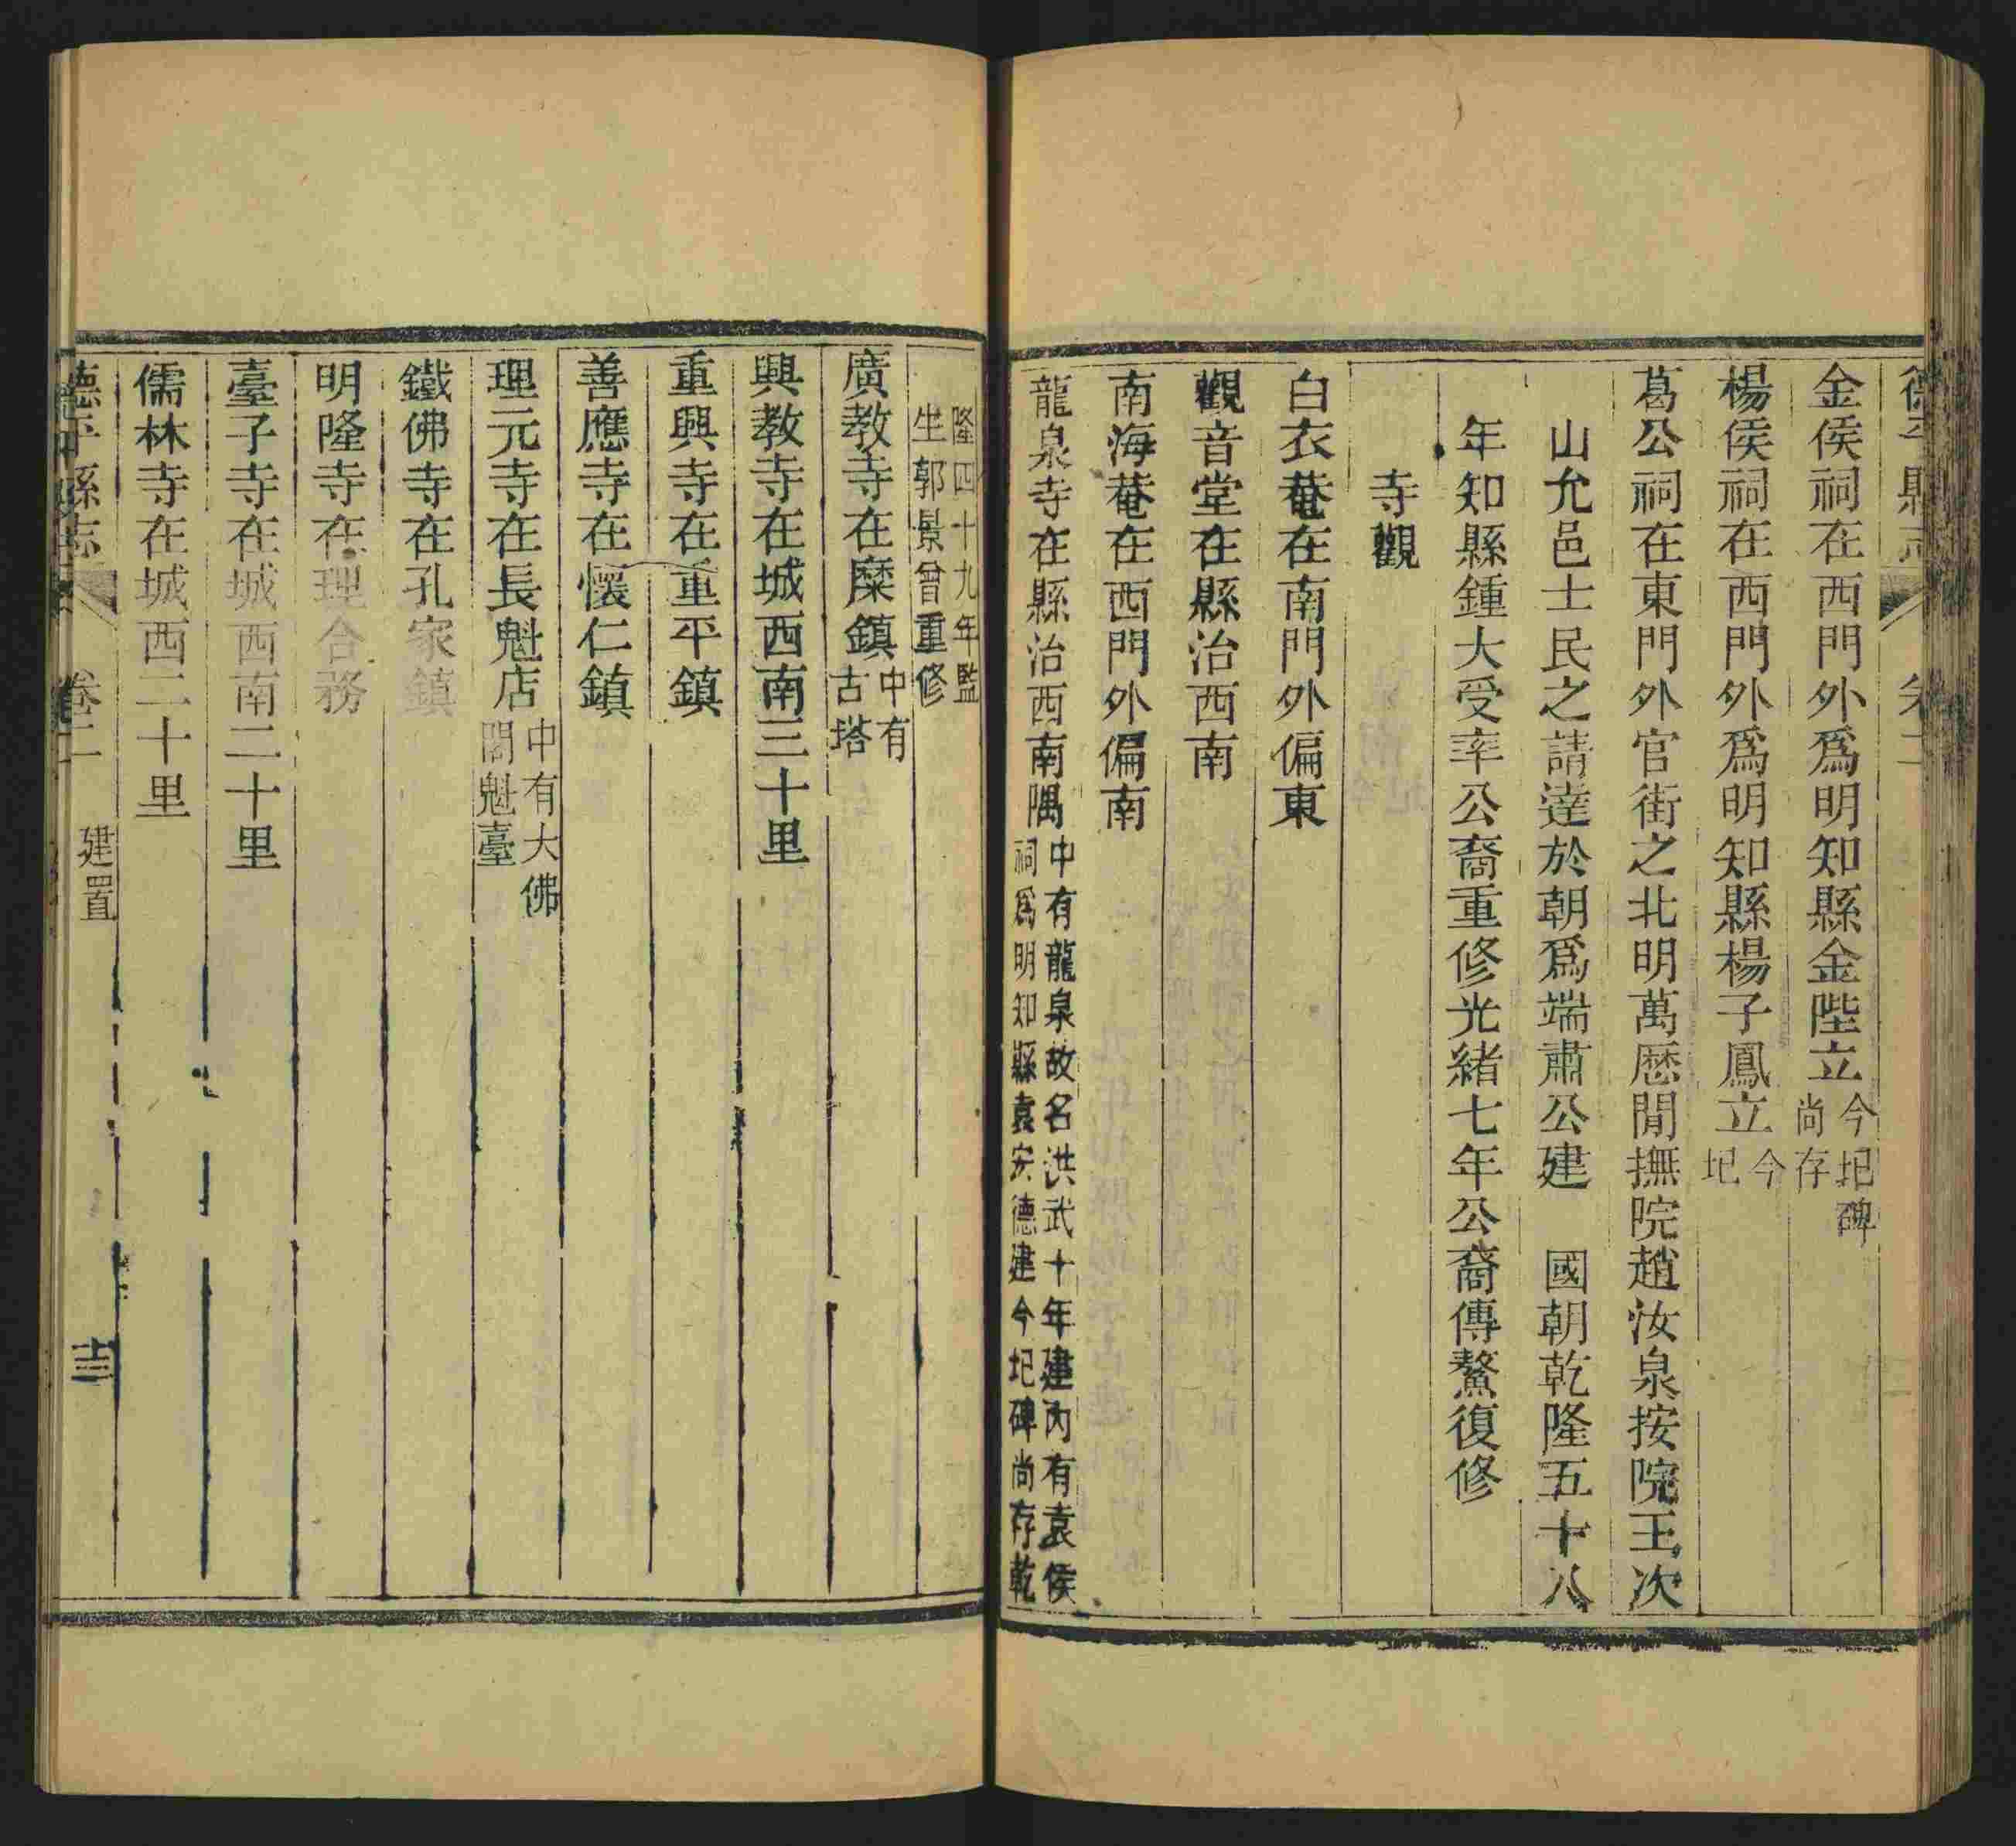 德平縣志 卷二
金侯祠在西門外爲明知縣金陛立今圯碑尚存
楊侯祠在西門外爲明知縣楊子鳳立今圯
葛公祠在東門外官街之北明萬歷閒撫院趙汝泉按院王次
山允邑士民之請達於朝爲端肅公建　國朝乾隆五十八
年知縣鍾大受率公裔重修光緒七年公裔傳鰲復修
寺觀
白衣菴在南門外偏東
觀音堂在縣治西南
南海菴在西門外偏南
龍泉寺在縣治西南隅中有龍泉故名洪武十年建內有袁侯祠爲明知縣袁宏德建今圯碑尚存乾
隆四十九年監生郭景曾重修
廣教寺在糜鎮中有古塔
興教寺在城西南三十里
重興寺在重平鎮
善應寺在懷仁鎮
理元寺在長魁店中有大佛閣魁臺
鐵佛寺在孔家鎮
明隆寺在理合務
臺子寺在城西南二十里
儒林寺在城西二十里
德平縣志 卷二 建置 十三